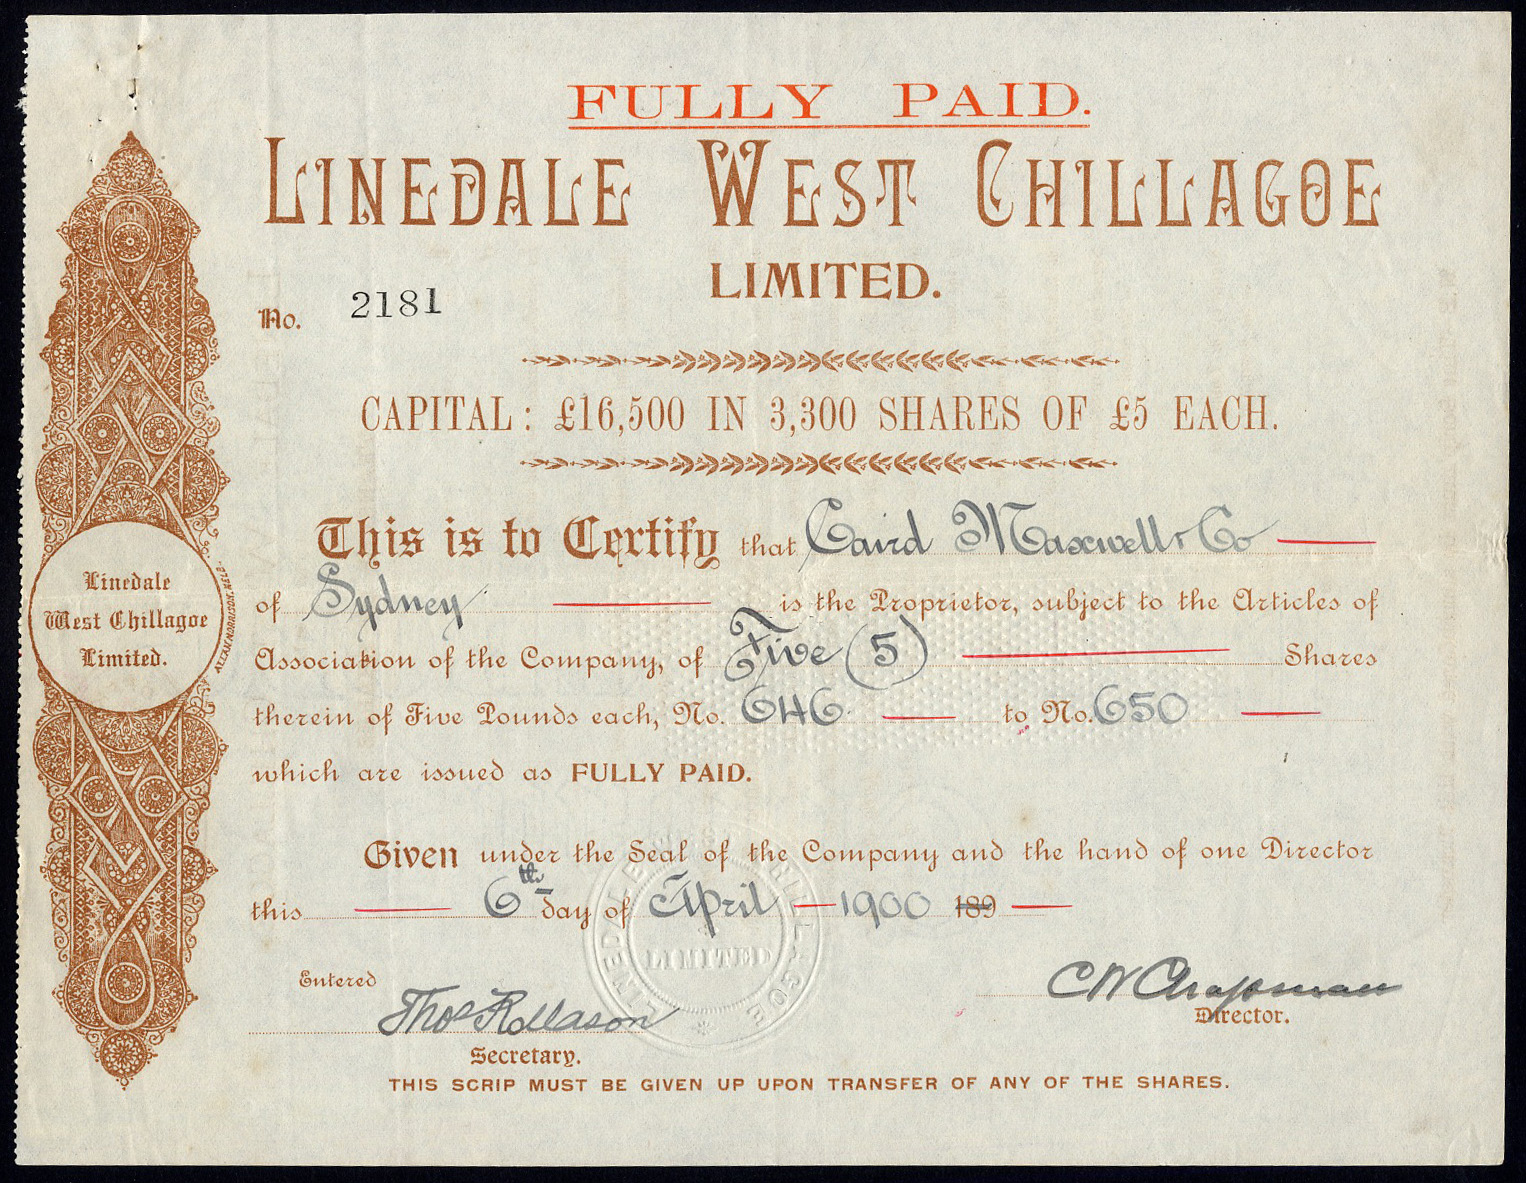 FULLY PAID.
LINEDALE WEST CHILLAGOE
LIMITED.
No. 2181
CAPITAL: £16,500 IN 3,300 SHARES OF £5 EACH.
This is to Certify that Caird Maxwell & Co
of Sydney is the Proprietor, subject to the Articles of
Association of the Company, of Five (5) Shares
therein of Five Pounds each, No. 646 to No. 650
which are issued as FULLY PAID.
Given under the Seal of the Company and the hand of one Director
this 6th day of April 1900 189
Entered
Thos Rollason
Secretary.
C W Chapman
Director.
THIS SCRIP MUST BE GIVEN UP UPON TRANSFER OF ANY OF THE SHARES.
Linedale
West Chillagoe
Limited.
LINEDALE WEST CHILLAGOE
LIMITED